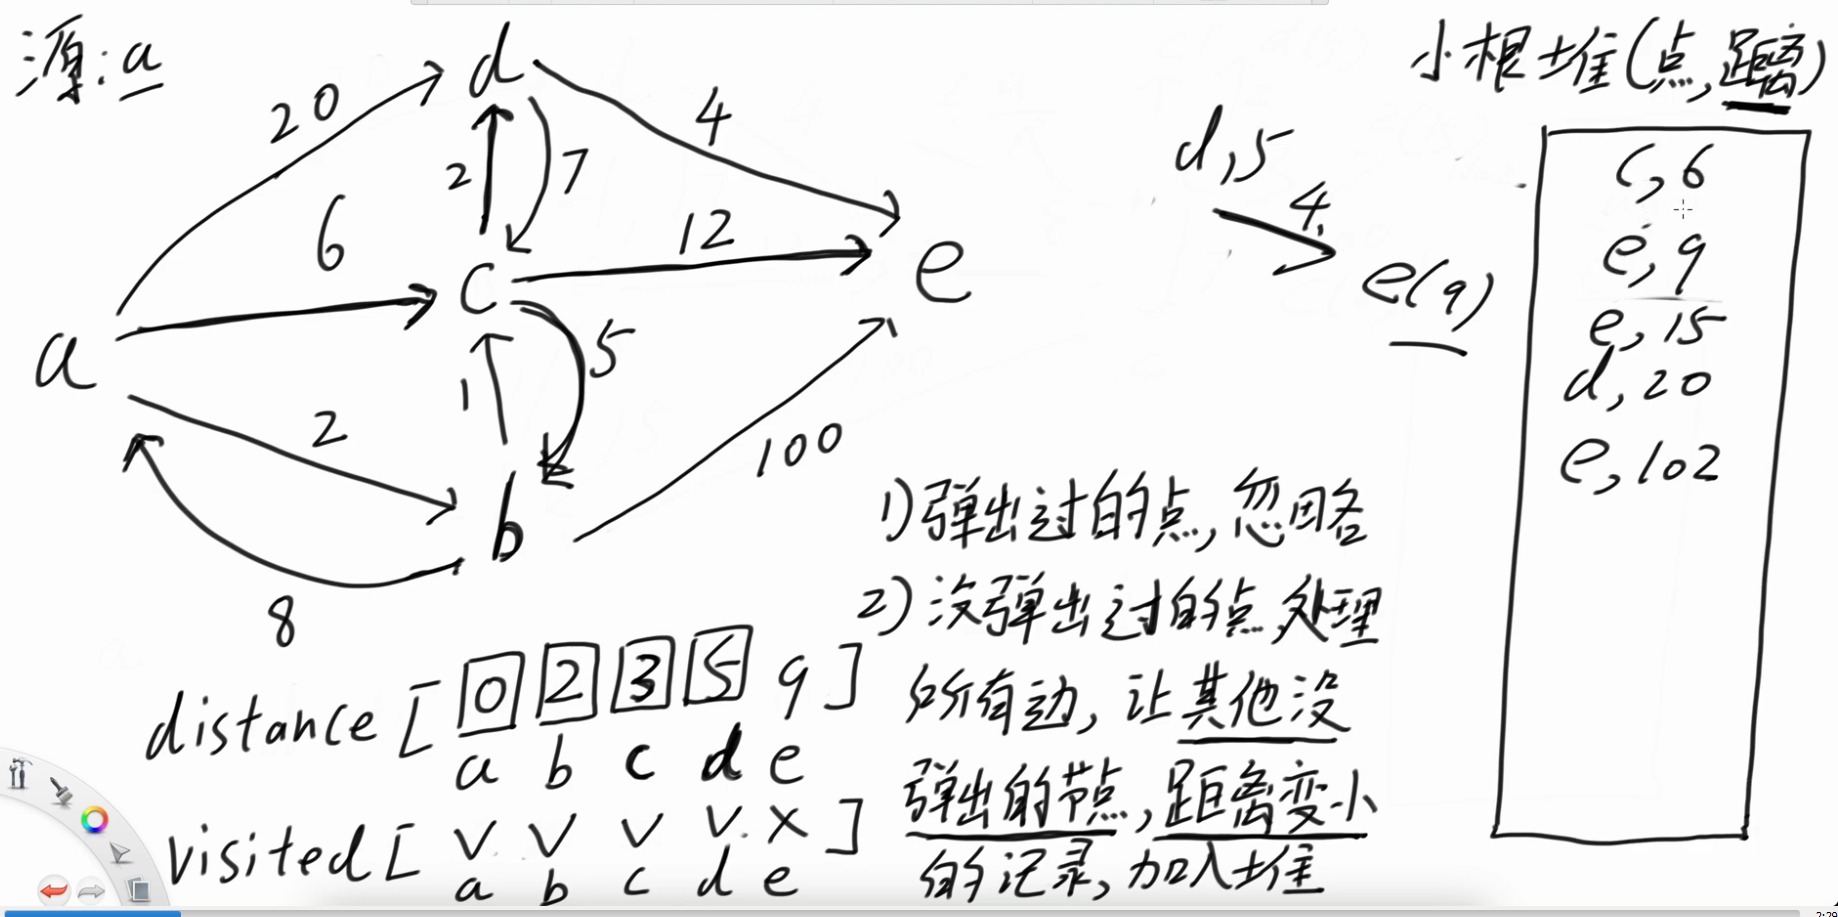 源:a
小根堆(点,距离)
d
20
4
2
7
6
12
c
e
a
5
1
2
100
b
8
d,5
4
e(9)
c,6
e,9
e,15
d,20
e,102
1)弹出过的点,忽略
2)没弹出过的点,处理
所有边,让其他没
弹出的节点,距离变小
的记录,加入堆
distance [ 0 2 3 5 9 ]
a b c d e
visited [ v v v v x ]
a b c d e
2:29